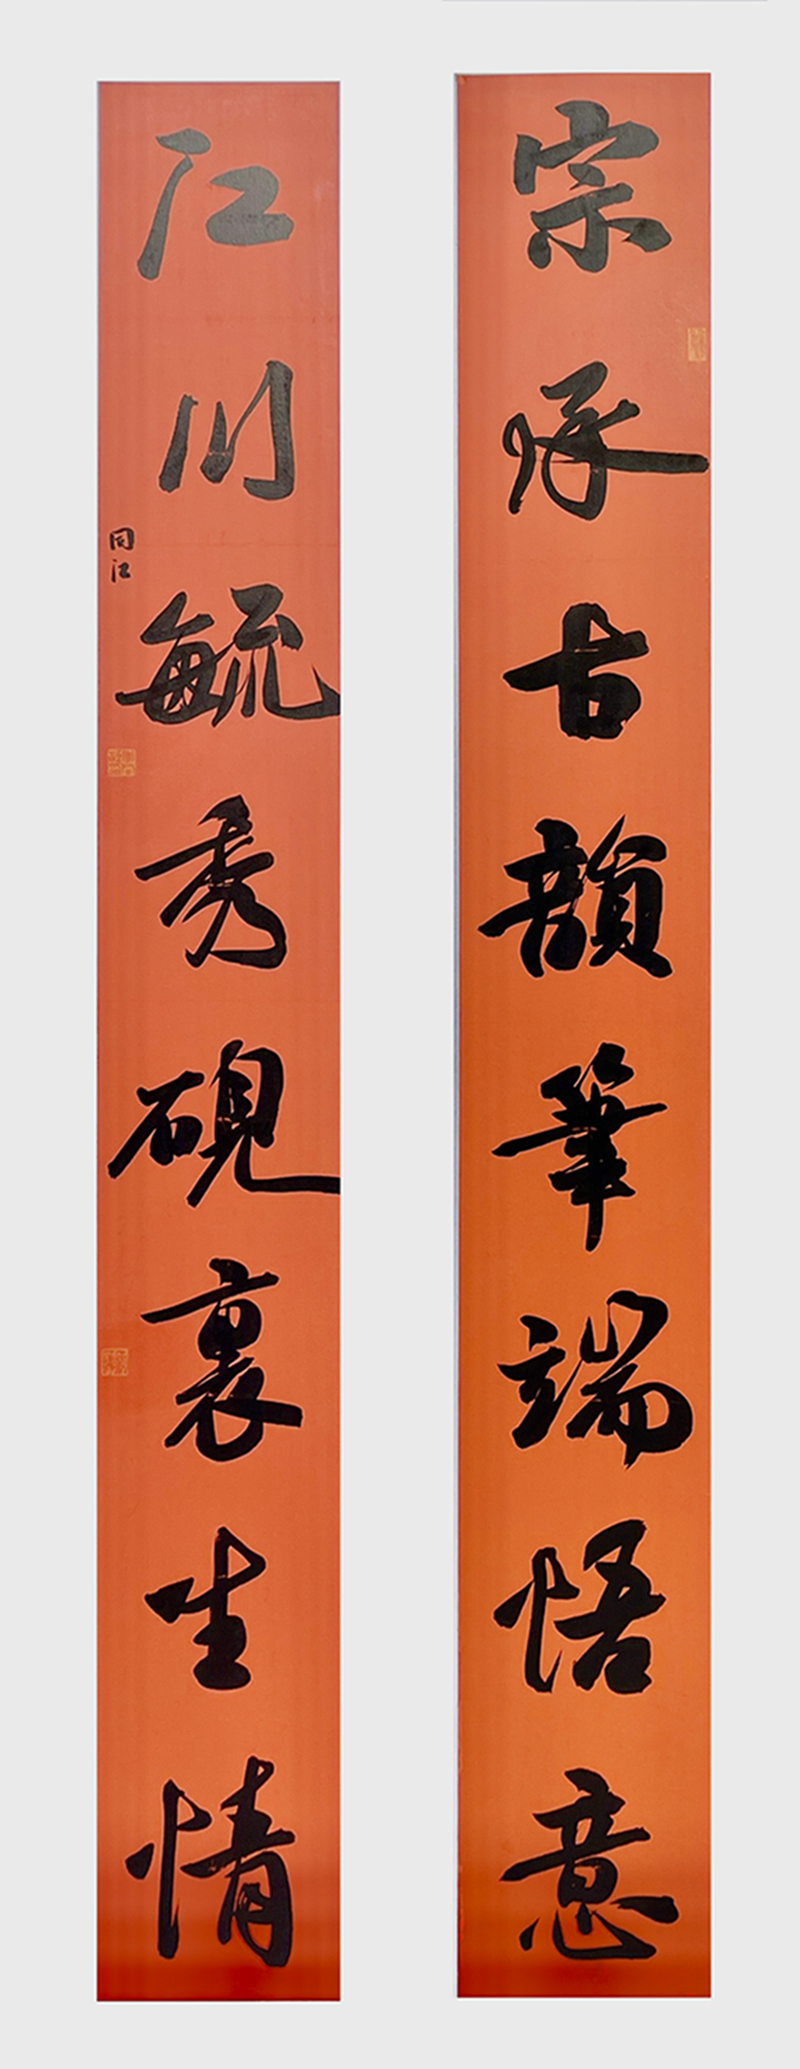 宗承古韻筆端悟意
江川毓秀硯裏生情
同江